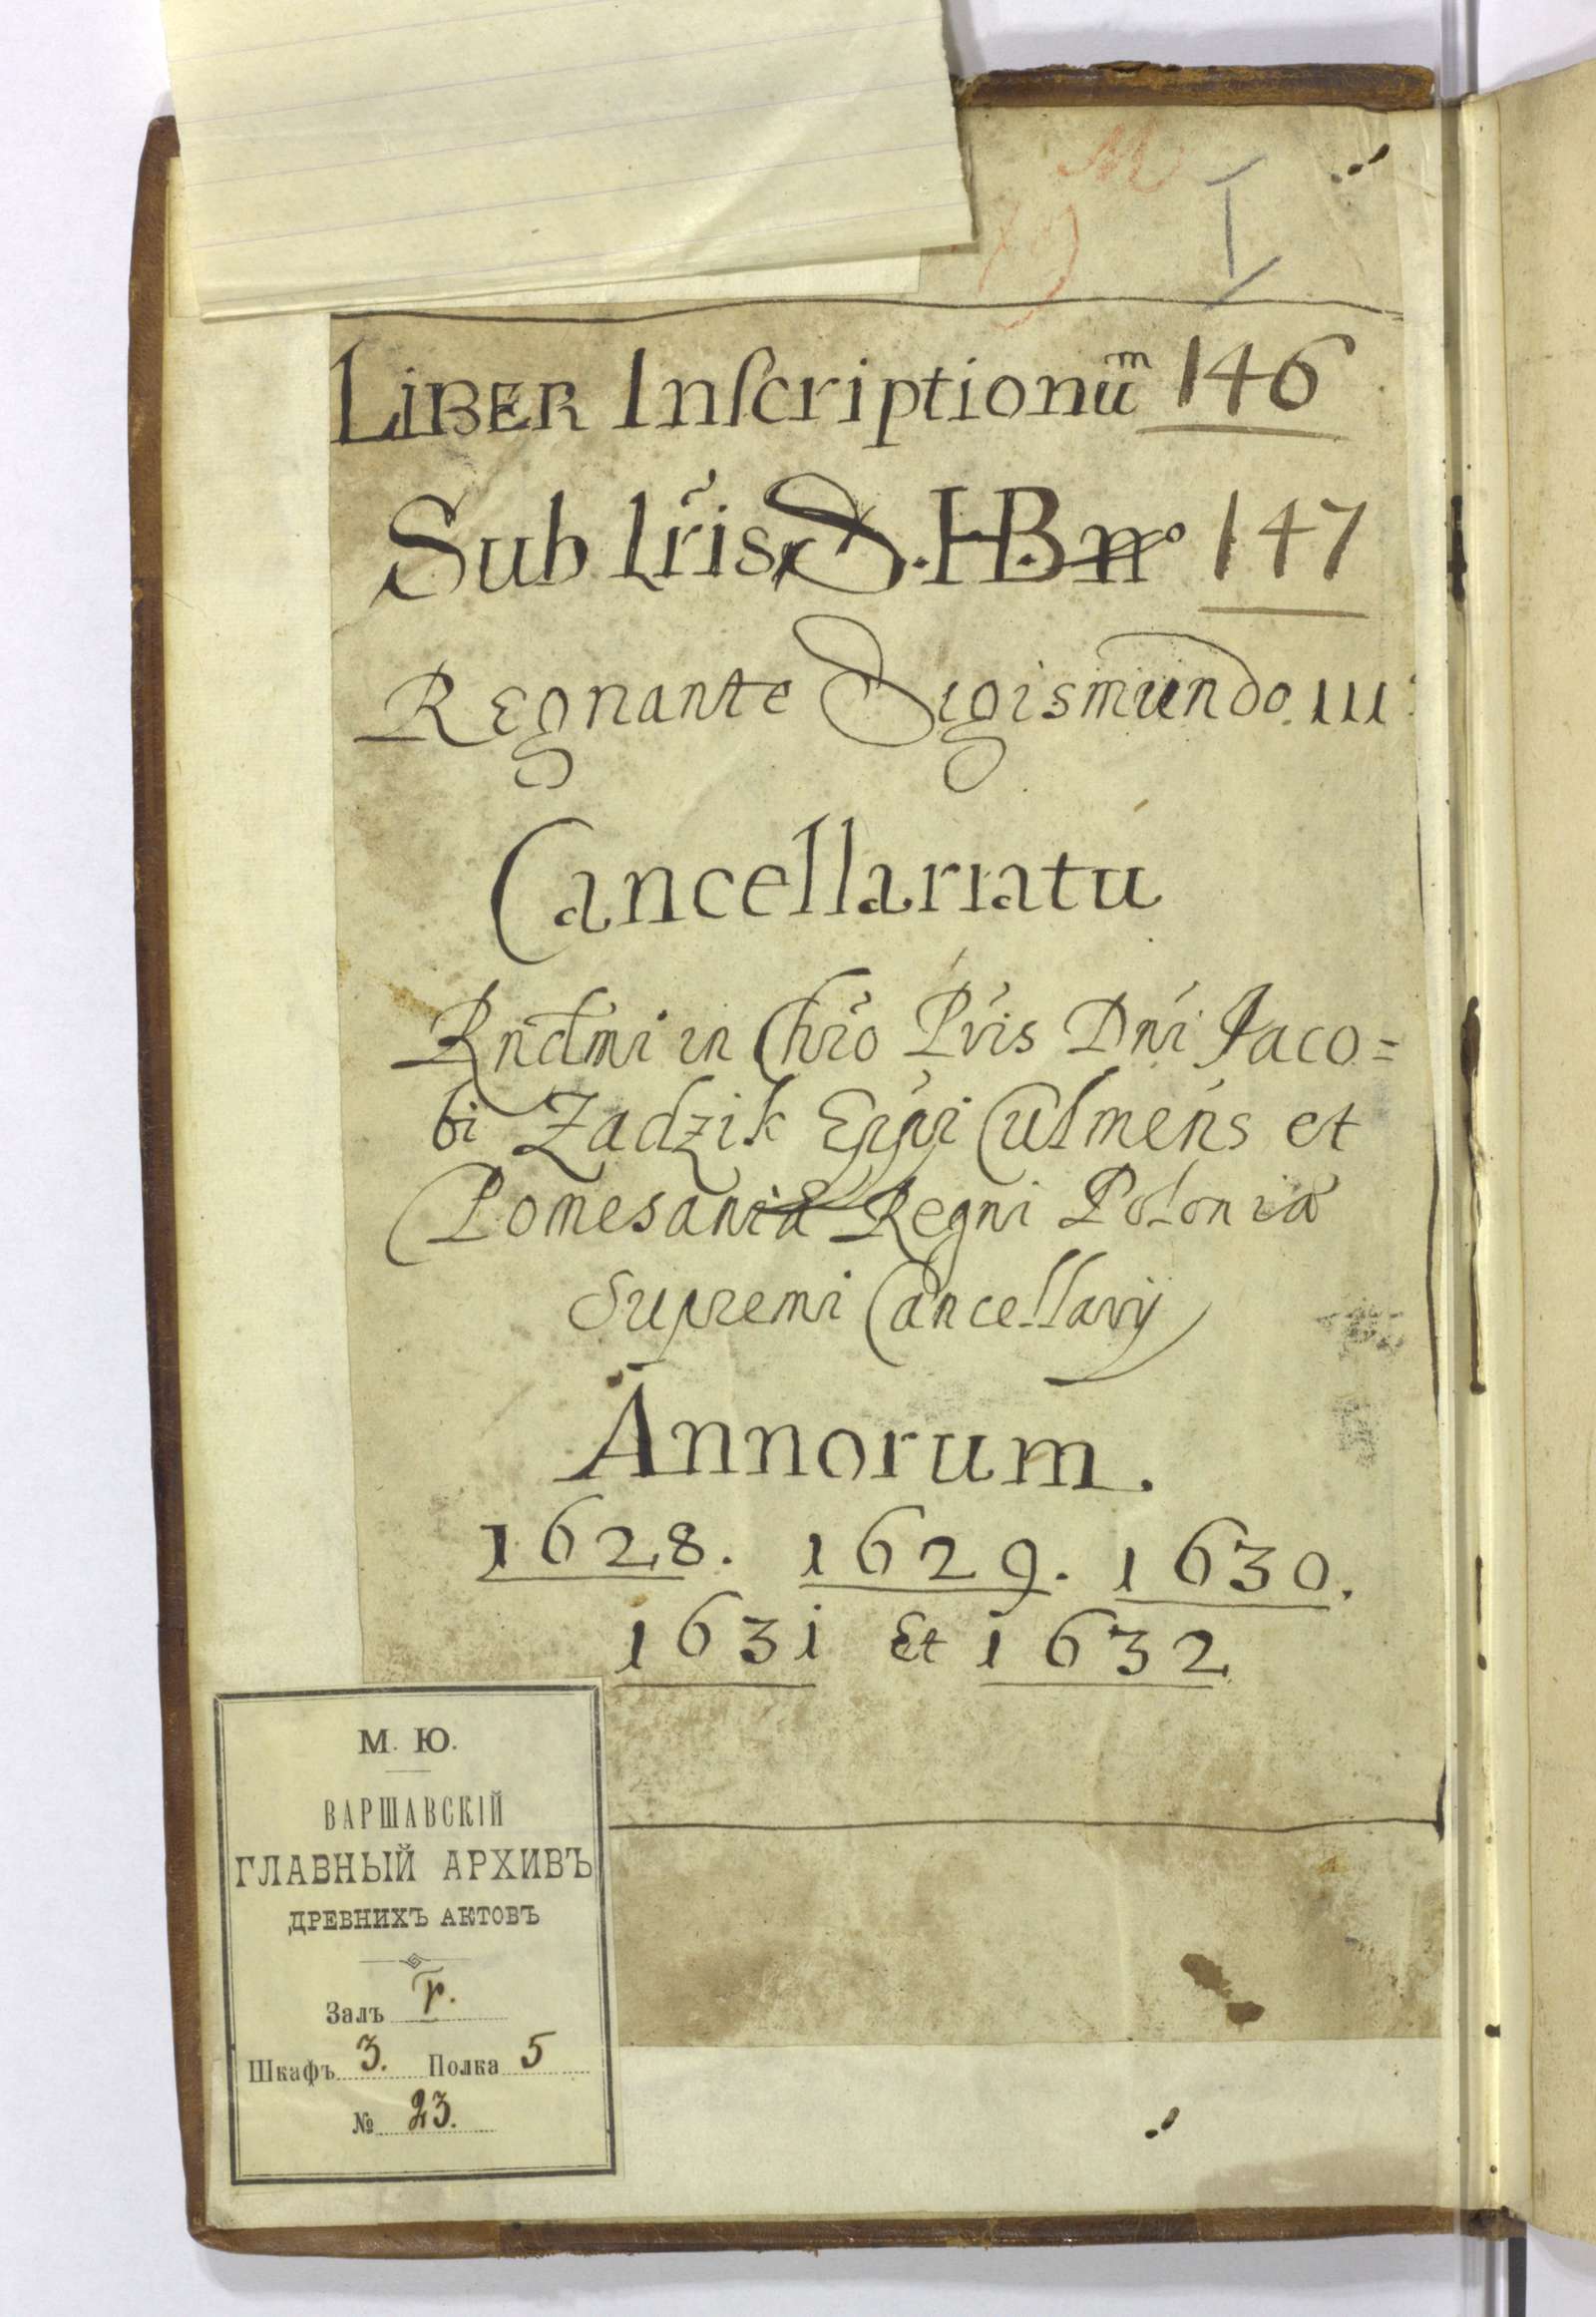 M
I
LIBER Inſcriptionũm 146
Sub lr̃is S. HB nr̊ 147
Regnante Sigismundo III
Cancellariatu
Rndmi in Chro Pris Dni Jaco=
bi Zadzik Eppi Culmens et
Pomesaniæ Regni Poloniæ
Supremi Cancellarij
Annorum.
1628. 1629. 1630.
1631 Et 1632
М. Ю.
ВАРШАВСКІЙ
ГЛАВНЫЙ АРХИВЪ
ДРЕВНИХЪ АКТОВЪ
Залъ
Шкафъ 3. Полка 5
№ 23.